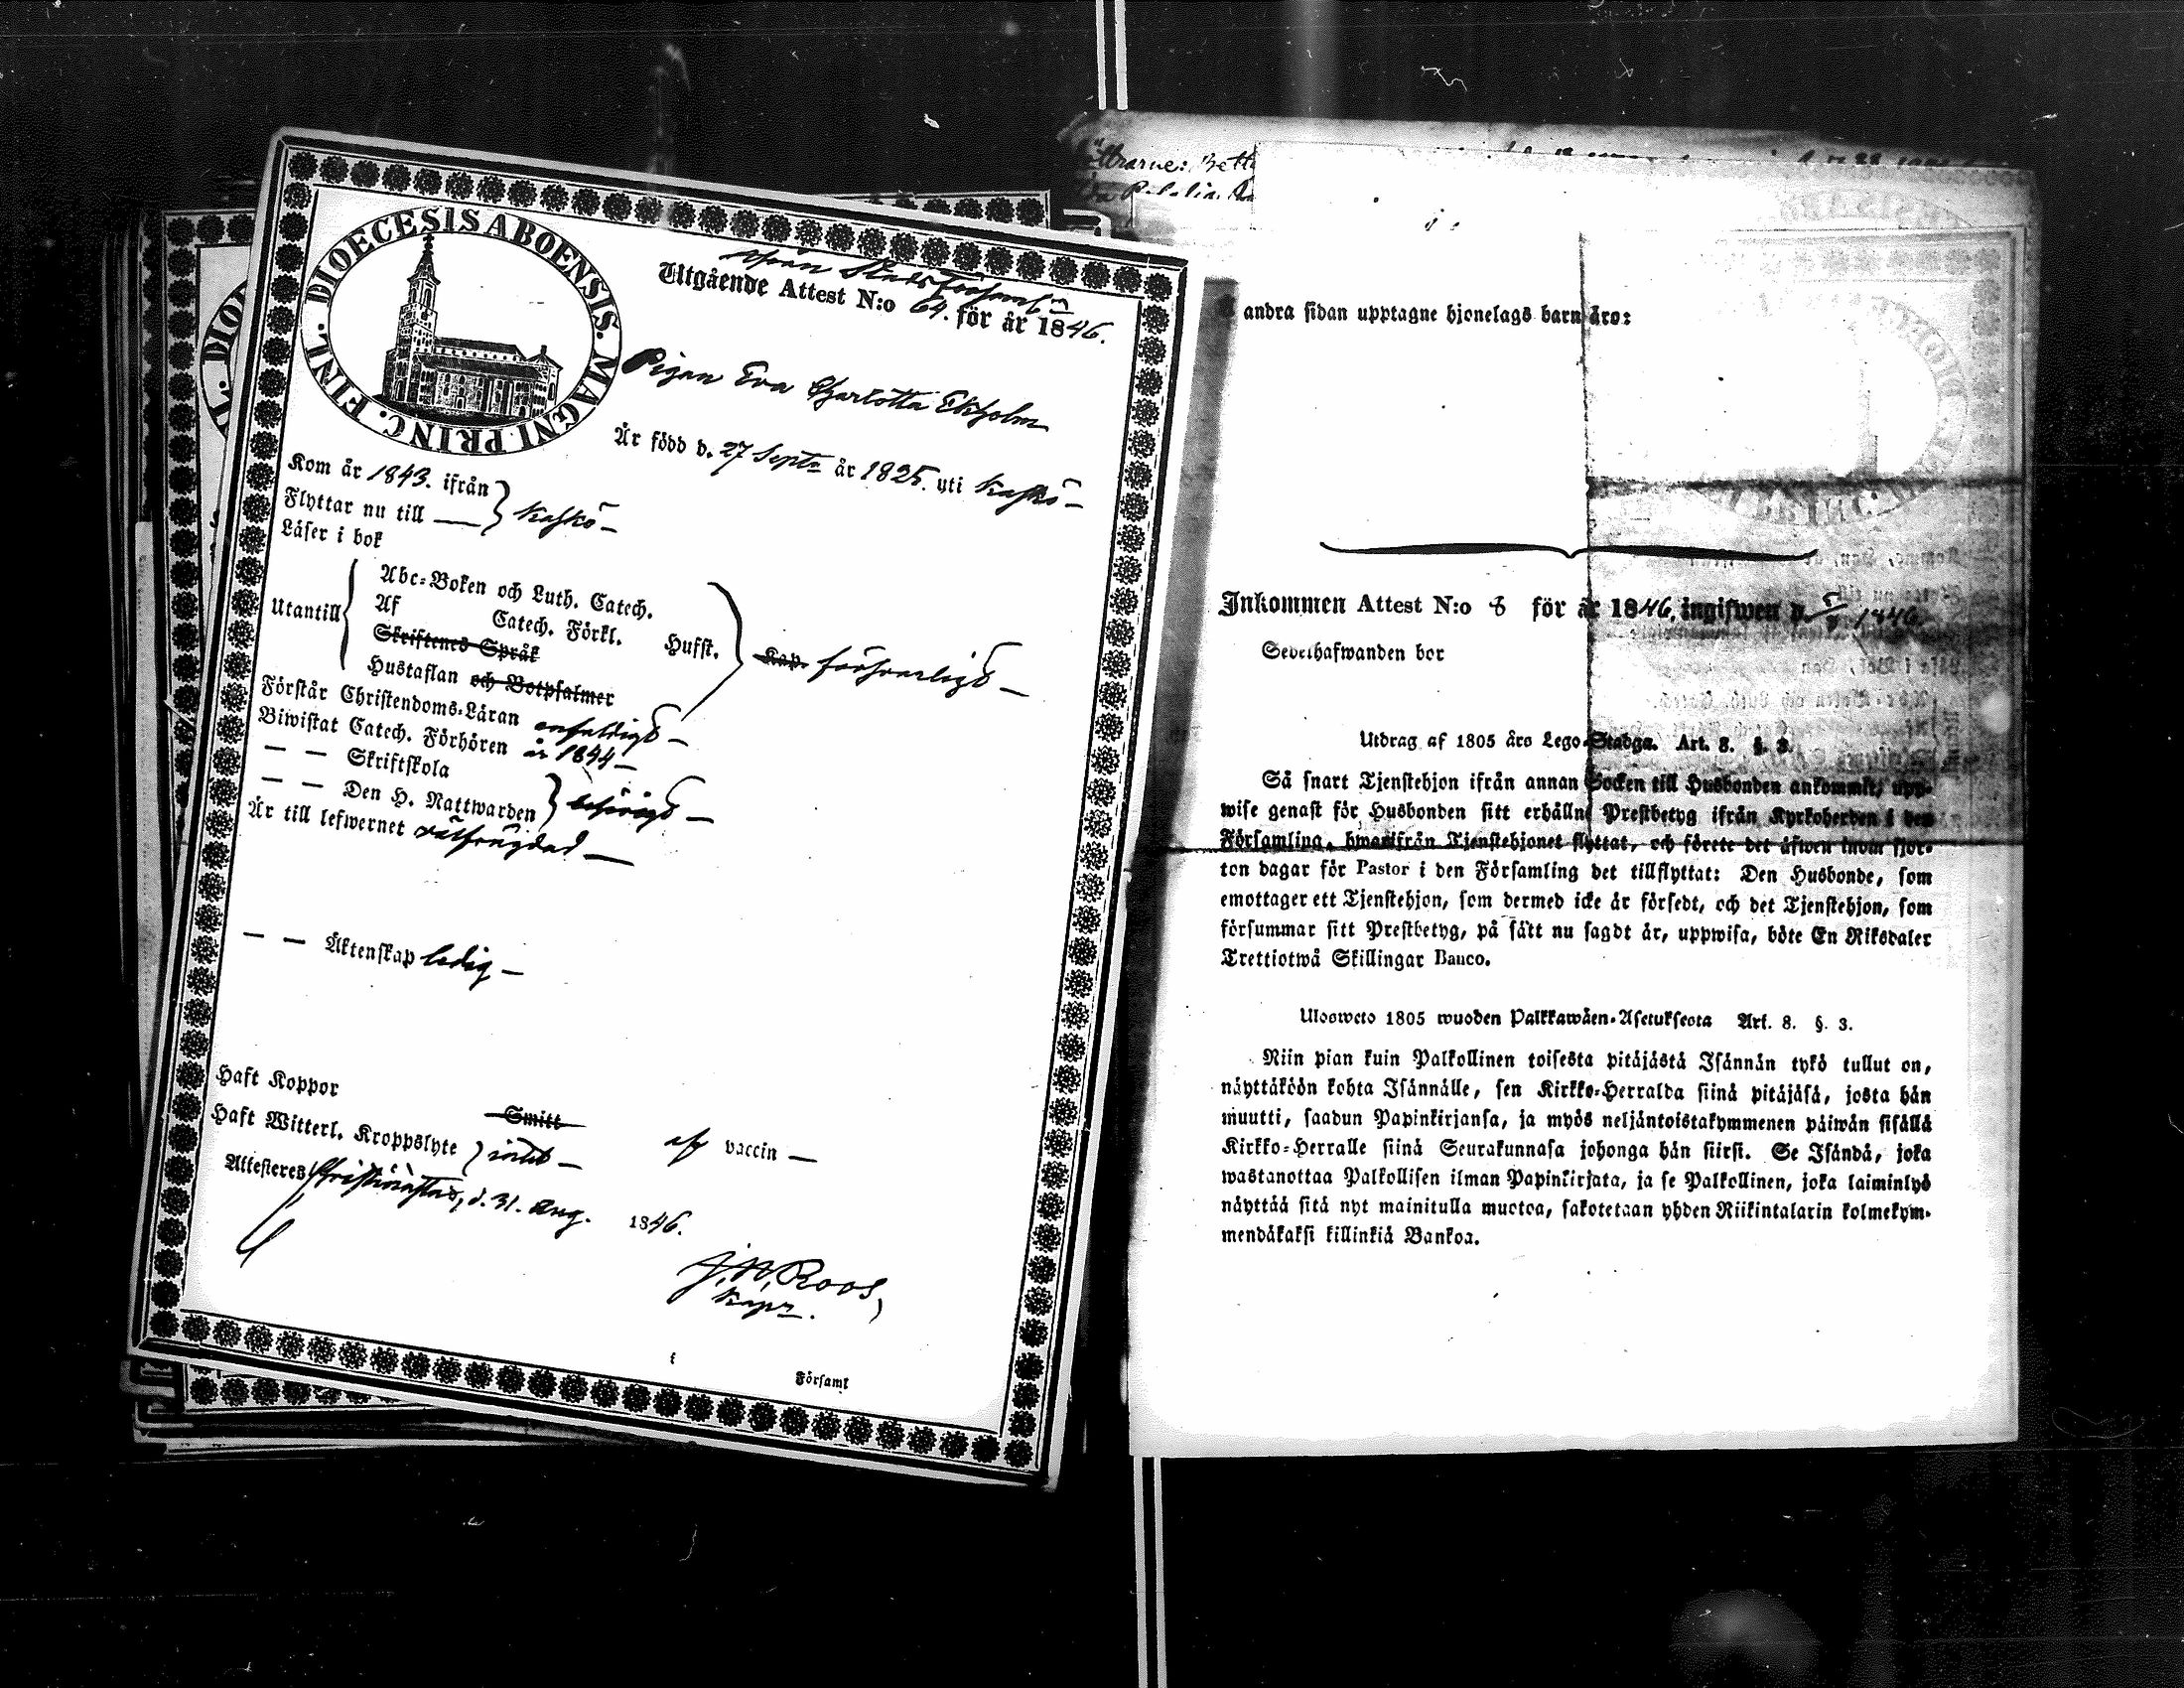 DIOECESIS ABOENSIS. MAGNI PRINC. FINL.
ifrån Stads församl:n
Utgående Attest N:o 64. för år 1846.
Pigan Eva Charlotta Ekholm
Är född d. 27 Sept:r år 1825. uti Kaskö –
Kom år 1843. ifrån
Flyttar nu till — } Kaskö –
Läser i bok
Utantill
Abc-Boken och Luth. Catech.
Af Catech. Förkl. Hufst.
Skriftenes Språk
Hustaflan och Botpsalmer
Kap. försvarligt –
Förstår Christendoms-Läran enfaldigt –
Biwistat Catech. Förhören år 1844 –
— — Skriftskola
— — Den H. Nattwarden } behörigt –
Är till lefwernet rätfrägdad —
— — Äktenskap ledig –
Haft Koppor Smitt af vaccin —
Haft Witterl. Kroppslyte } intet –
Attesteres Christinæstad, d. 31. Aug. 1846.
J. N. Roos,
Kapn.
i Församl
ättrarne: Bett
andra sidan upptagne hjonelags barn äro:
Inkommen Attest N:o 8 för år 1846, ingifwen d. 5/9 1846.
Sedelhafwanden bor
Utdrag af 1805 års Lego-Stadga. Art. 8. §. 3.
Så snart Tjenstehjon ifrån annan Socken till Husbonden ankommit, upp-
wise genast för Husbonden sitt erhållne Prestbetyg ifrån Kyrkoherden i den
Församling, hwarifrån Tjenstehjonet flyttat, och förete det äfwen inom fjor-
ton dagar för Pastor i den Församling det tillflyttat: Den Husbonde, som
emottager ett Tjenstehjon, som dermed icke är försedt, och det Tjenstehjon, som
försummar sitt Prestbetyg, på sätt nu sagdt är, uppwisa, böte En Riksdaler
Trettiotwå Skillingar Banco.
Ulosweto 1805 wuoden Palkkawäen-Asetuksesta Art. 8. §. 3.
Niin pian kuin Palkollinen toisesta pitäjästä Isännän tykö tullut on,
näyttäköön kohta Isännälle, sen Kirkko-Herralda siinä pitäjäsä, josta hän
muutti, saadun Papinkirjansa, ja myös neljäntoistakymmenen päiwän sisällä
Kirkko-Herralle siinä Seurakunnasa johonga hän siirsi. Se Isändä, joka
wastanottaa Palkollisen ilman Papinkirjata, ja se Palkollinen, joka laiminlyö
näyttää sitä nyt mainitulla muotoa, sakotetaan yhden Riikintalarin kolmekym-
mendäkaksi killinkiä Bankoa.